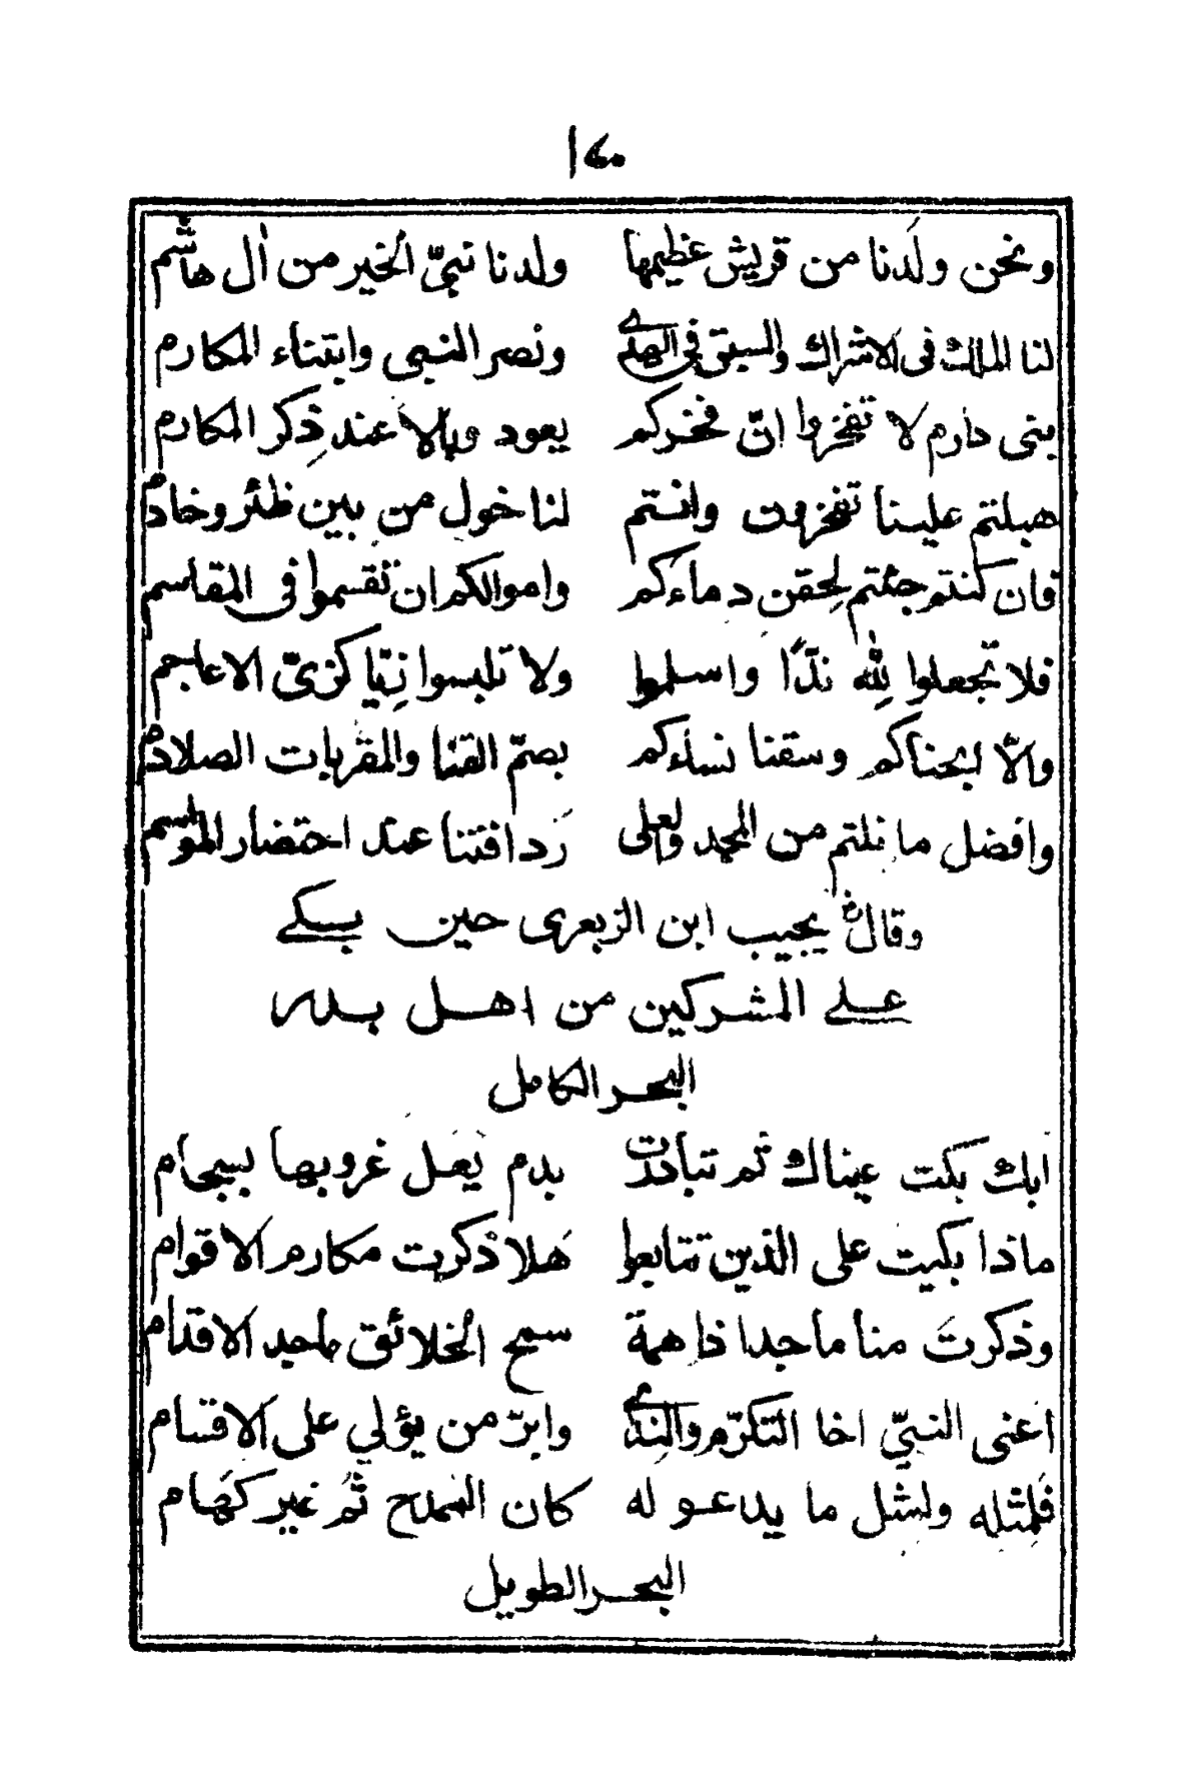 ١٤٠
ونحن ولَدنا من قريش عظيمها ولدنا نبيّ الخير من اٰل هاشم
لنا الملك فى الاشراك والسبق فى الهدى ونصر النبى وابتناء المكارم
بنى دارم لا تفخروا انّ فخركم يعود وبالا عند ذِكر المكارم
هبلتم علينا تفخرون وانتم لنا خول من بين ظئر وخادم
فان كنتم جئتم لِحقن دماءكم واموالكم ان تقسموا فى المقاسم
فلا تجعلوا لِلّٰه ندّا واسلموا ولا تلبسوا زيّا كزىّ الاعاجم
والّا ابحناكم وسقنا نساءكم بصمّ القنا والمقربات الصلادم
وافضل ما نلتم من المجد والعلى رَدافتنا عند احتضار المواسم
وقال يجيب ابن الزبعرى حين بكى
على المشركين من اهل بدر
البحر الكامل
ابك بكت عيناك ثم تبادرت بدم يَعل غروبها بسجام
ماذا بكيت على الذين تتابعوا هَلا ذكرت مكارم الاقوام
وذكرتَ منا ماجدا ذا همة سمح الخلائق ماجد الاقدام
اَعنى النبيّ اخا التكرّم والنِدى وابرّ من يؤلي على الاقسام
فَلمثله ولمثل ما يدعو له كان الممدح ثم غير كهَام
البحر الطويل